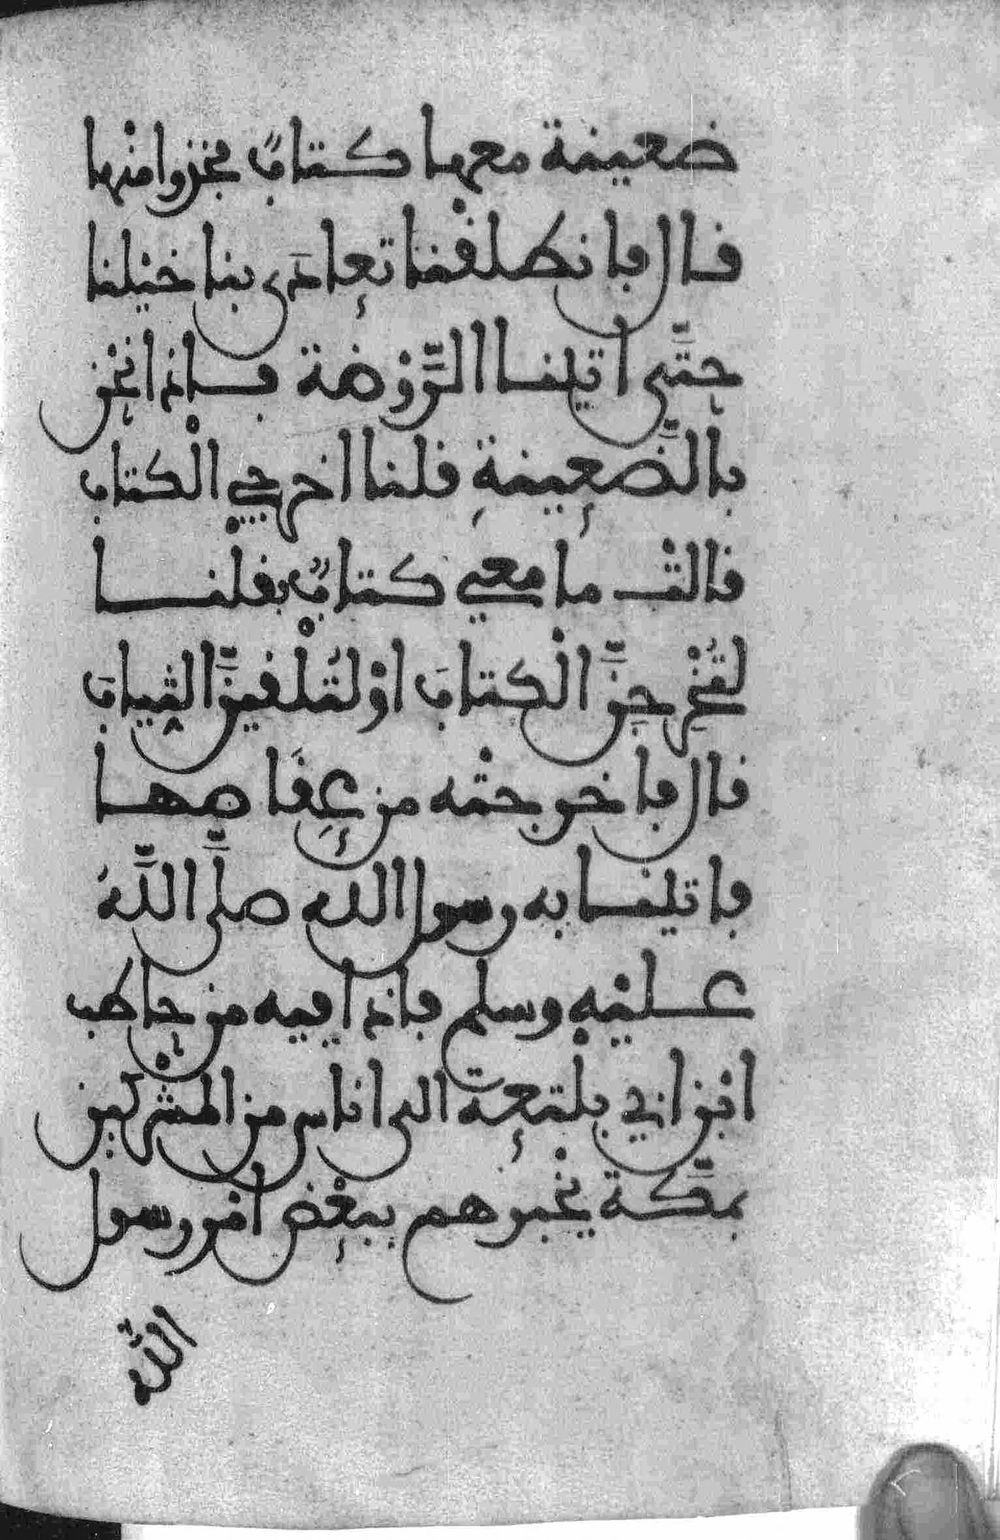 ضعينة معها كتابٌ فخذوا منها
قال فانطلقنا تعادَى بنا خيْلنا
حتَّى اتيْنا الرَّوْضة فاذا نحْن
بالضَّعِينةِ قلنا اخرجي الْكتاب
قالتْ ما معي كتابٌ فقلْنا
لتُخْرِجِنَّ الْكتابَ اوْ لتُلْقِينَّ الثِيابَ
قال فاخرجتْه من عِقَاصها
فاتيْنا به رسول الله صلَّى اللَّهُ
عليْهِ وسلم فاذا فِيه من حاطب
ابْن ابي بلْتعة الى اناس من المشْركين
بمكَّة يخْبرهم ببعْض امْر رسول
الله